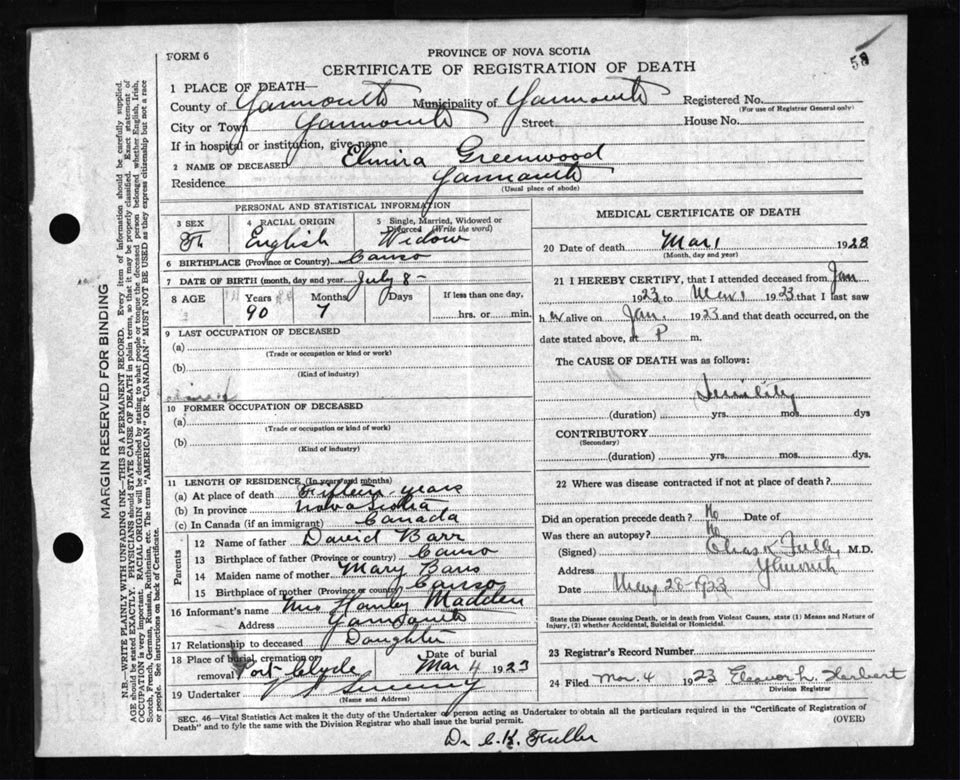 FORM 6
PROVINCE OF NOVA SCOTIA
58
CERTIFICATE OF REGISTRATION OF DEATH
1 PLACE OF DEATH—
County of Yarmouth Municipality of Yarmouth Registered No.
(For use of Registrar General only)
City or Town Yarmouth Street House No.
If in hospital or institution, give name
2 NAME OF DECEASED Elmira Greenwood
Residence Yarmouth
(Usual place of abode)
PERSONAL AND STATISTICAL INFORMATION
3 SEX 4 RACIAL ORIGIN 5 Single, Married, Widowed or Divorced (Write the word)
English Widow
6 BIRTHPLACE (Province or Country) Canso
7 DATE OF BIRTH (month, day and year) July 8-
8 AGE Years Months Days If less than one day,
90 7 hrs. or min.
9 LAST OCCUPATION OF DECEASED
(a)
(Trade or occupation or kind or work)
(b)
(Kind of industry)
10 FORMER OCCUPATION OF DECEASED
(a)
(Trade or occupation or kind of work)
(b)
(Kind of industry)
11 LENGTH OF RESIDENCE (In years and months)
(a) At place of death Fifteen years
(b) In province Nova Scotia
(c) In Canada (if an immigrant) Canada
Parents
12 Name of father David Barr
13 Birthplace of father (Province or country) Canso
14 Maiden name of mother Mary Bars
15 Birthplace of mother (Province or country) Canso
16 Informant's name Mrs Madden
Address Yarmouth
17 Relationship to deceased Daughter
18 Place of burial, cremation or removal Port Clyde Date of burial Mar 4 1923
19 Undertaker
(Name and Address)
MEDICAL CERTIFICATE OF DEATH
20 Date of death Mar 1 1923
(Month, day and year)
21 I HEREBY CERTIFY, that I attended deceased from Jan
1923 to Mar 1 1923 that I last saw
h er alive on Jan. 1923 and that death occurred, on
date stated above, at P m.
The CAUSE OF DEATH was as follows:
Senility
(duration) yrs. mos. dys
CONTRIBUTORY
(Secondary)
(duration) yrs. mos. dys.
22 Where was disease contracted if not at place of death?
Did an operation precede death? No Date of
Was there an autopsy? No
(Signed) Chas K Fuller M.D.
Address Yarmouth
Date May 28-1923
State the Disease causing Death, or in death from Violent Causes, state (1) Means and Nature of
Injury, (2) whether Accidental, Suicidal or Homicidal.
23 Registrar's Record Number
24 Filed Mar. 4 1923 Eleanor L. Herbert
Division Registrar
SEC. 46—Vital Statistics Act makes it the duty of the Undertaker or person acting as Undertaker to obtain all the particulars required in the "Certificate of Registration of
Death" and to fyle the same with the Division Registrar who shall issue the burial permit.
(OVER)
Dr C. K. Fuller
MARGIN RESERVED FOR BINDING
N.B.—WRITE PLAINLY WITH UNFADING INK—THIS IS A PERMANENT RECORD. Every item of information should be carefully supplied.
AGE should be stated EXACTLY. PHYSICIANS should STATE CAUSE OF DEATH in plain terms, so that it may be properly classified. Exact statement of
OCCUPATION is very important. RACIAL ORIGIN will be described by stating to what people or tongue the deceased person belonged whether English, Irish,
Scotch, French, German, Russian, Ruthenian, etc. The terms "AMERICAN" OR "CANADIAN" MUST NOT BE USED as they express citizenship but not a race
or people. See instructions on back of Certificate.